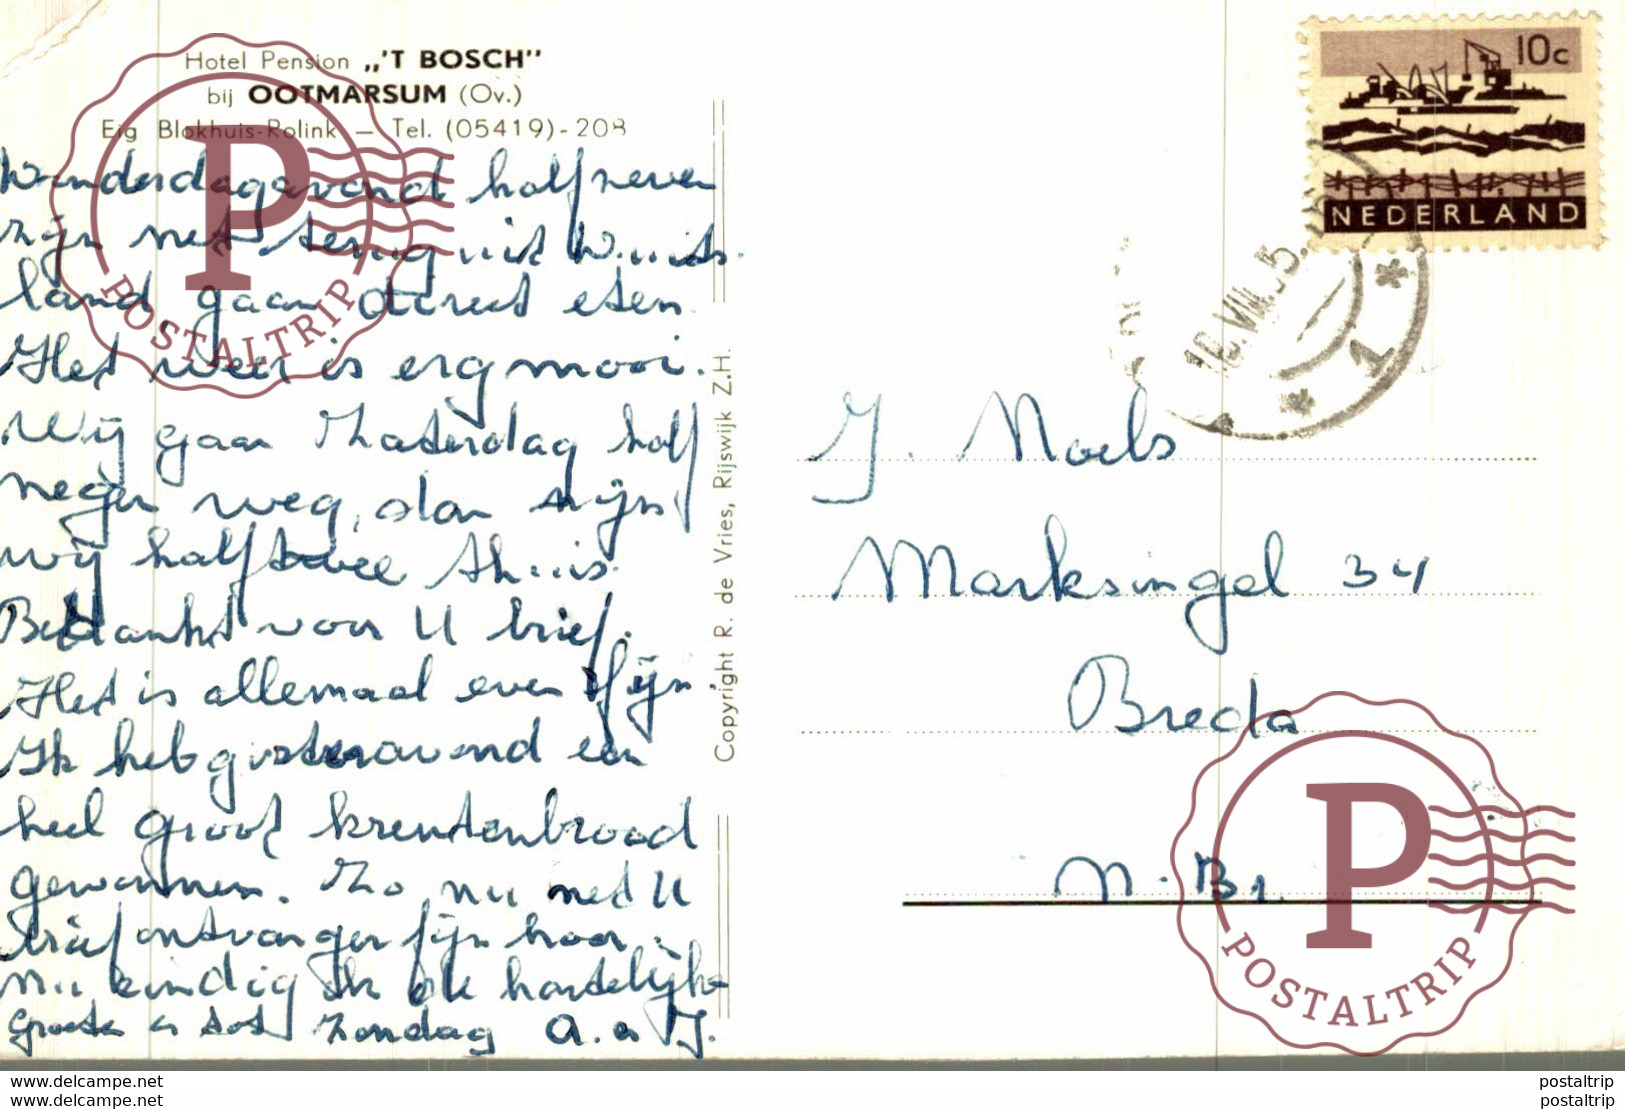 Hotel Pension „'T BOSCH"
bij OOTMARSUM (Ov.)
Eig Blokhuis-Rolink — Tel. (05419)-208
Donderdagavond half zeven
zijn net terug uit Duits
land gaan direct eten
Het weer is erg mooi.
Wij gaan Zaterdag half
negen weg, dan zijn
wij half twee thuis.
Bedankt voor U brief.
Het is allemaal even fijn.
Ik heb gisteravond een
heel groot krentenbrood
gewonnen. Zo nu net U
brief ontvangen fijn hoor.
Nu eindig ik de hartelijke
Groeten en tot Zondag A. en J.
Copyright R. de Vries, Rijswijk Z.H.
10c
NEDERLAND
10.VIII.
1
J. Noels
Marksingel 34
Breda
N. Br.
P
POSTALTRIP
P
POSTALTRIP
www.delcampe.net
www.delcampe.net
postaltrip
postaltrip